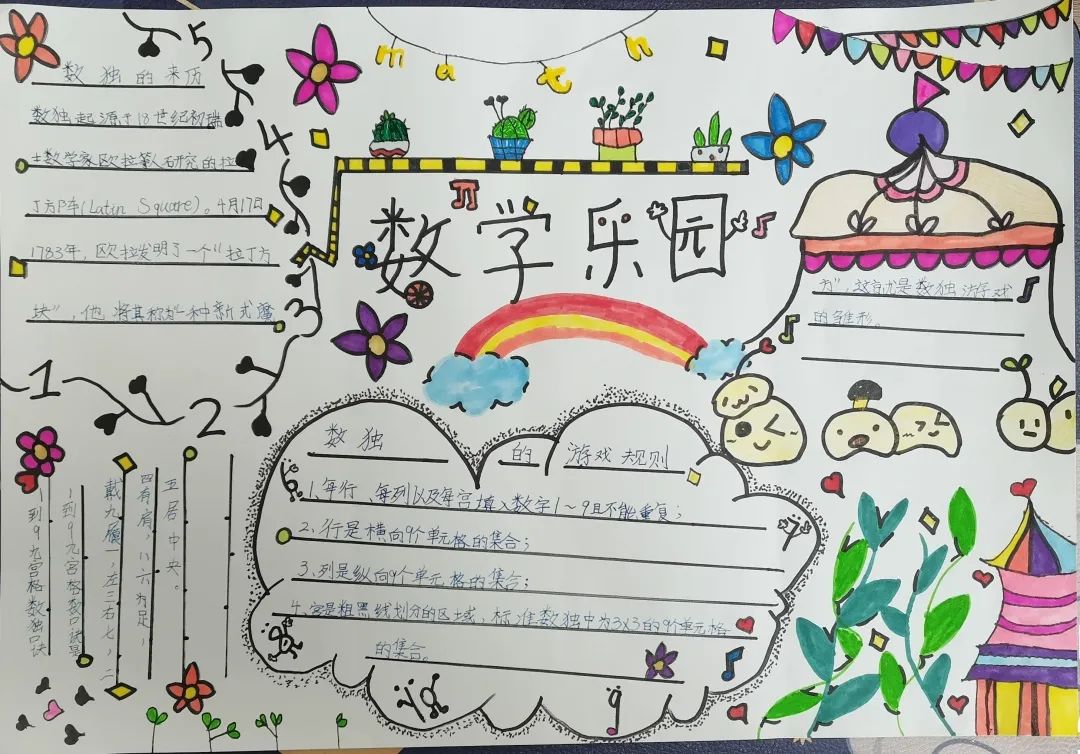 math
数学乐园
π
5
4
3
2
1
数独的来历
数独起源于18世纪初瑞
士数学家欧拉等人研究的拉
丁方阵(Latin Square)。4月17日
1783年，欧拉发明了一个“拉丁方
块”，他将其称为“一种新式魔
方”，这就是数独游戏
的雏形。
1到9九宫格数独口诀
1到9九宫格数口诀是
戴九履一，左三右七，二
四有肩，八六为足，
五居中央。
数独的游戏规则
1、每行、每列以及每宫填入数字1～9且不能重复；
2、行是横向9个单元格的集合；
3、列是纵向9个单元格的集合；
4、宫是粗黑线划分的区域，标准数独中为3x3的9个单元格
的集合。
7
9